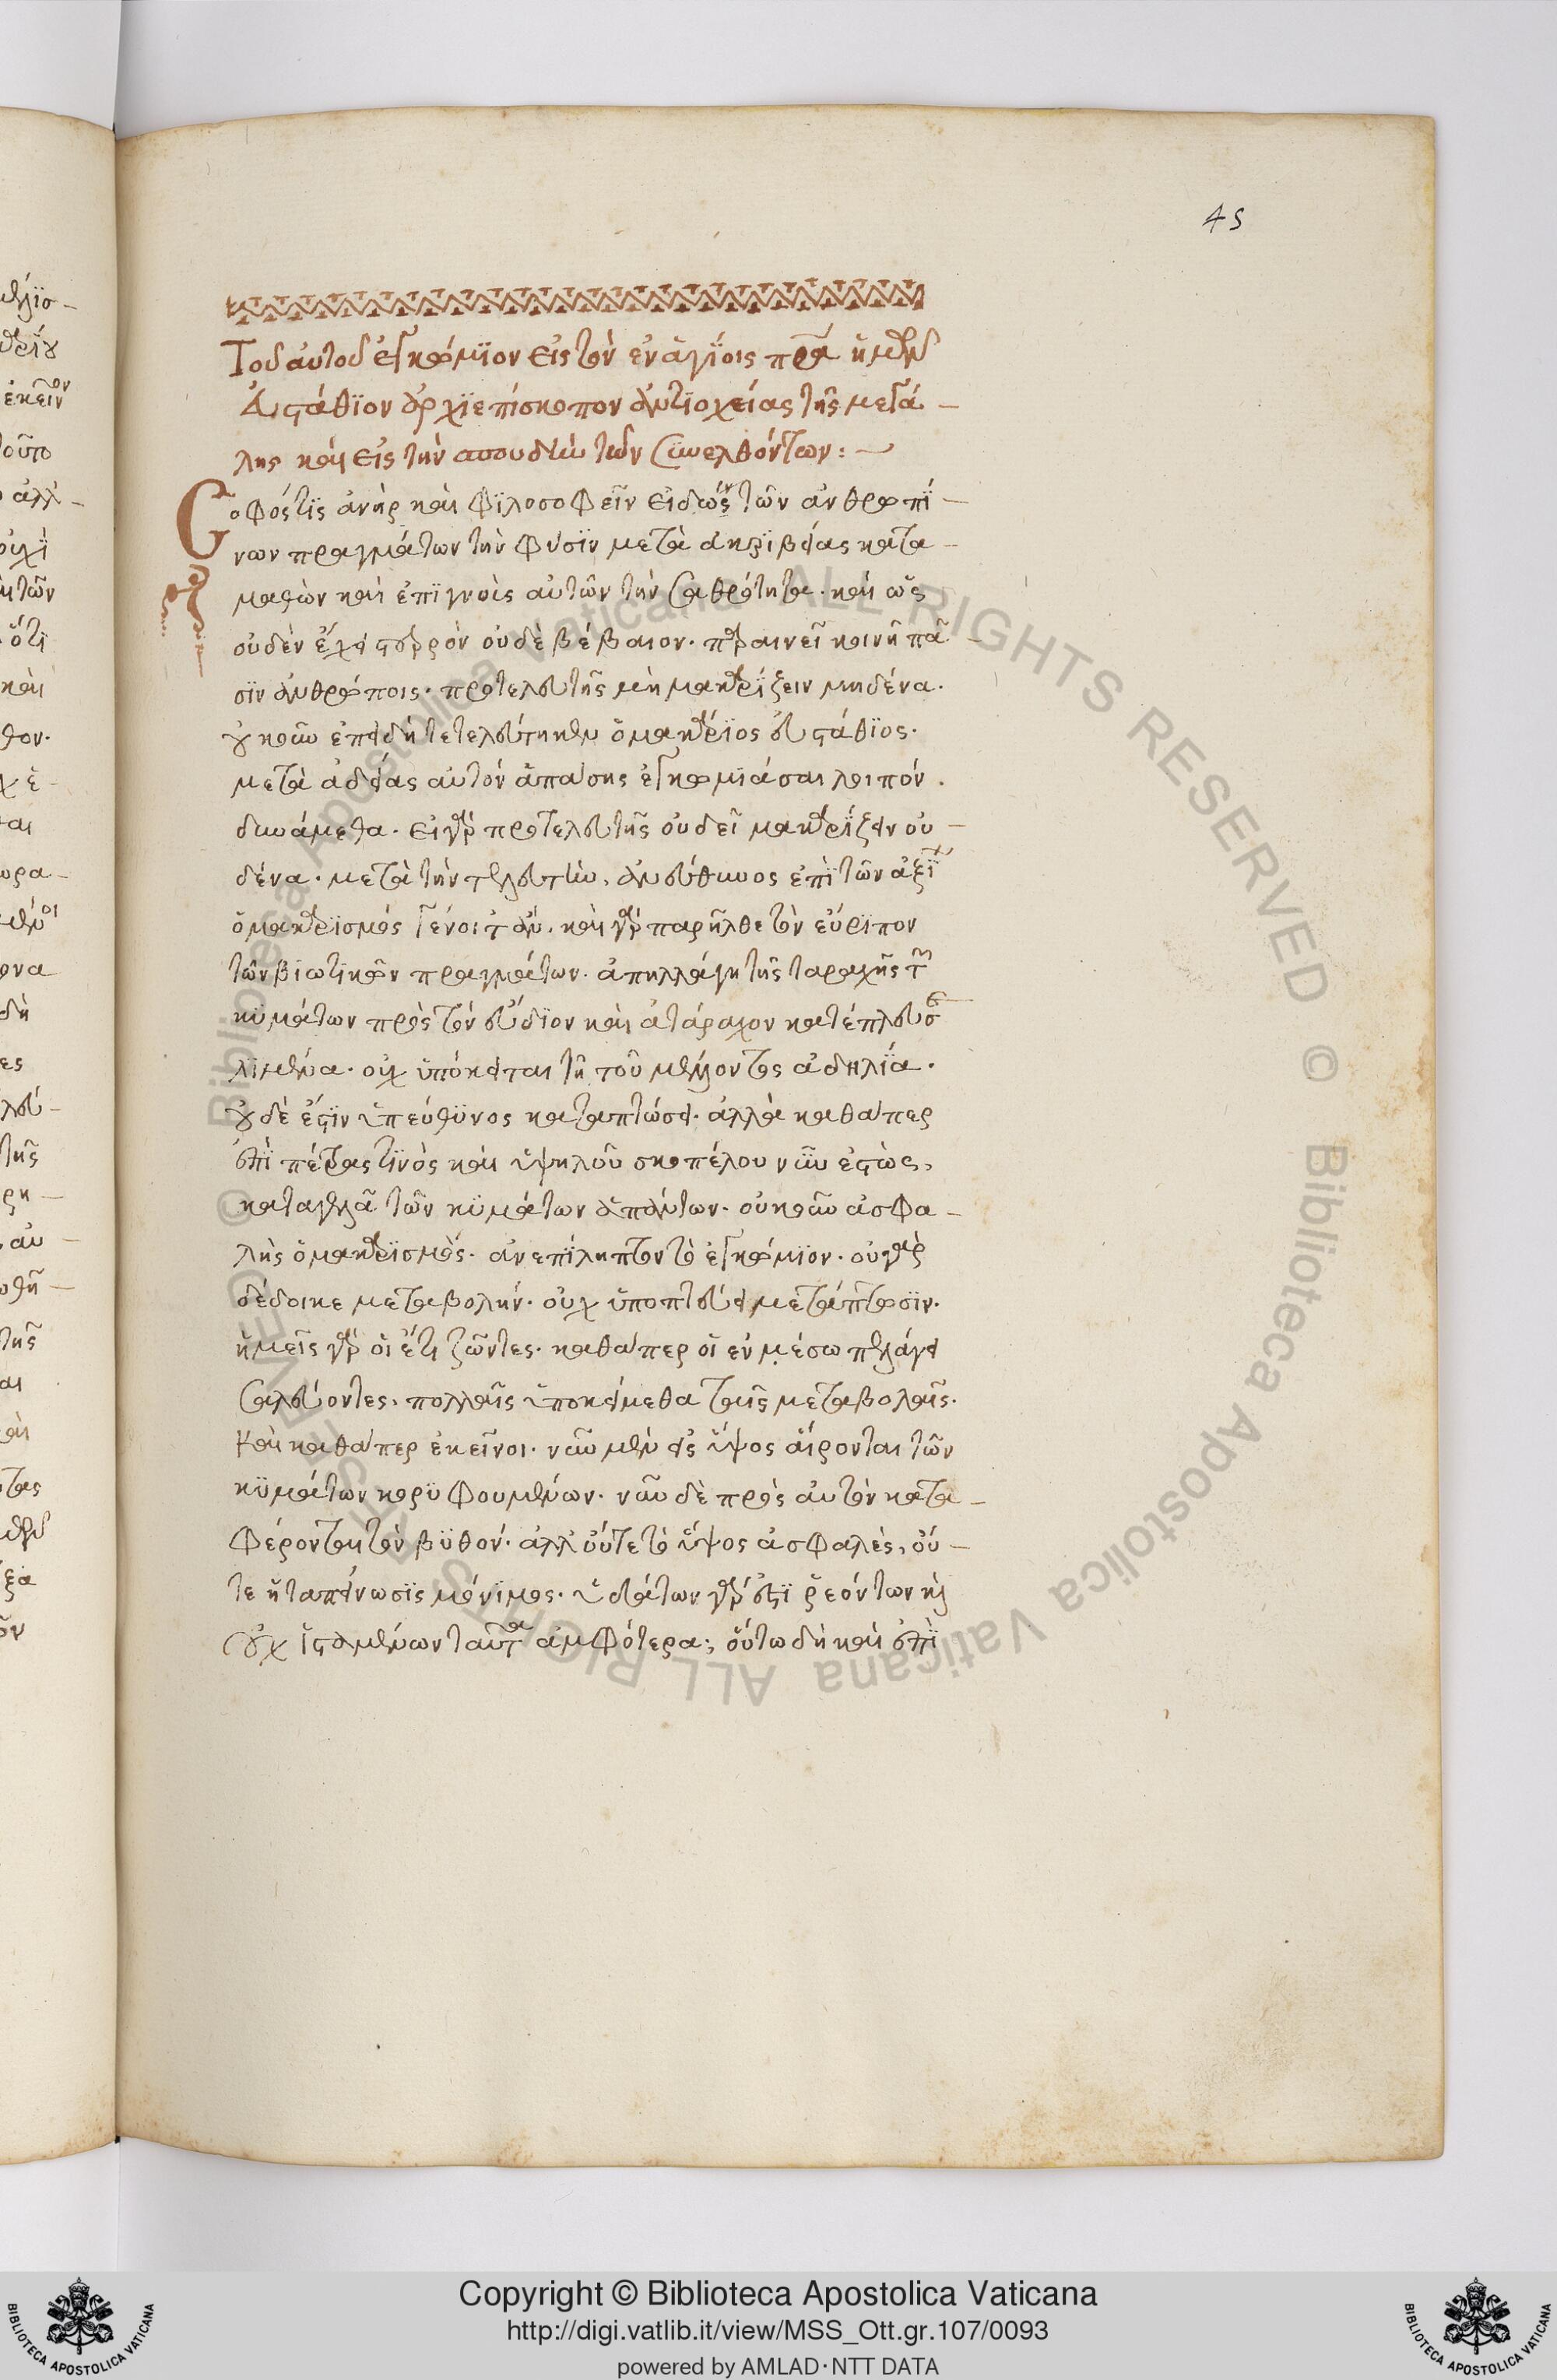 45
Τοῦ αὐτοῦ ἐγκώμϊον εἰς τὸν ἐν ἁγΐοις πρα ἡμῶν
Εὐστάθϊον ἀρχϊεπίσκοπον ἀντϊοχείας τῆς μεγά-
λης καὶ εἰς τὴν σπουδὴν τῶν συνελθόντων:
Σοφός τϊς ἀνὴρ καὶ φϊλοσοφεῖν εἰδὼς τῶν ἀνθρωπΐ-
νων πραγμάτων τὴν φύσϊν μετὰ ἀκρϊβείας κατα-
μαθὼν καὶ ἐπϊγνοὺς αὐτῶν τὴν σαθρότητα. καὶ ὡς
οὐδὲν ἔχει στερρὸν οὐδὲ βέβαιον. παραινεῖ κοινῆ πᾶ-
σϊν ἀνθρώποις. πρὸ τελευτῆς μὴ μακαρΐζειν μηδένα.
οὐκοῦν ἐπειδὴ τετελεύτηκεν ὁ μακάρϊος εὐστάθϊος.
μετὰ ἀδείας αὐτὸν ἁπάσης ἐγκωμϊάσαι λοιπόν.
δυνάμεθα. εἰ γὰρ πρὸ τελευτῆς οὐ δεῖ μακαρΐζειν οὐ-
δένα. μετὰ τὴν τελευτὴν, ἀνεύθυνος ἐπὶ τῶν ἀξί
ὁ μακαρϊσμὸς γένοιτ ἄν. καὶ γὰρ παρῆλθε τὸν εὔρϊπον
τῶν βϊωτϊκῶν πραγμάτων. ἀπηλλάγη τῆς ταραχῆς τῶν
κϋμάτων πρὸς τὸν εὔδϊον καὶ ἀτάραχον κατέπλευσε
λϊμένα. οὐχ ὑπόκειται τῆ τοῦ μέλλοντος ἀδηλΐα.
οὐδὲ ἔστϊν ὑπεύθϋνος καταπτώσει. ἀλλὰ καθάπερ
ἐπὶ πέτρας τϊνὸς καὶ ὑψηλοῦ σκοπέλου νῦν ἑστὼς,
καταγελᾶ τῶν κϋμάτων ἁπάντων. οὐκοῦν ἀσφα-
λὴς ὁ μακαρϊσμὸς. ἀνεπΐληπτον τὸ ἐγκώμϊον. οὐ γὰρ
δέδοικε μεταβολήν. οὐχ ὑποπτεύει μετάπτωσϊν.
ἡμεῖς γὰρ οἱ ἔτι ζῶντες. καθάπερ οἱ ἐν μέσω πελάγει
σαλεύοντες, πολλαῖς ὑποκείμεθα ταῖς μεταβολαῖς.
καὶ καθάπερ ἐκεῖνοι. νῦν μὲν εἰς ὕψος αἴρονται τῶν
κϋμάτων κορϋφουμένων. νῦν δὲ πρὸς αὐτὸν κατα-
φέρονται τὸν βϋθόν. ἀλλ οὔτε τὸ ὕψος ἀσφαλὲς, οὔ-
τε ἡ ταπείνωσϊς μόνϊμος. ὑδάτων γάρ ἐστϊ ῥεόντων καὶ
οὐχ ἱσταμένων ταῦτα ἀμφότερα; οὕτω δὴ καὶ ἐπὶ
Copyright © Biblioteca Apostolica Vaticana
http://digi.vatlib.it/view/MSS_Ott.gr.107/0093
powered by AMLAD·NTT DATA
BIBLIOTECA APOSTOLICA VATICANA
BIBLIOTECA APOSTOLICA VATICANA